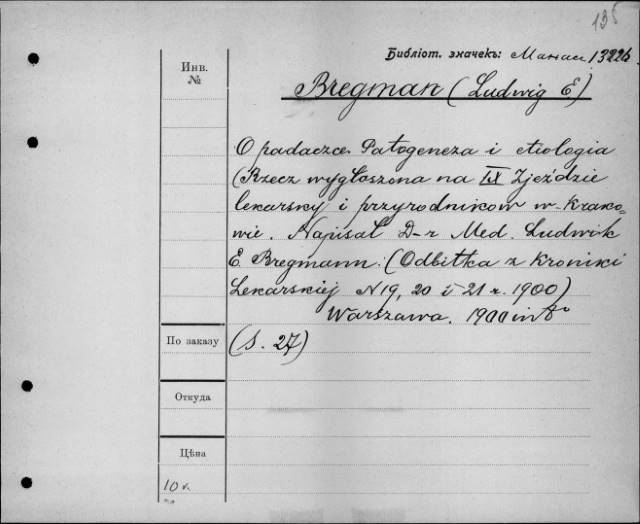 135
Библіот. значекъ: Манас 13226.
Инв.
№
Bregman (Ludwig E)
O padaczce. Patogeneza i etiologia
(Rzecz wygłoszona na IX Zjeździe
lekarsky i przyrodników w Krako-
wie. Napisał D-r Med. Ludwik
E. Bregmann. (Odbitka z Kroniki
Lekarskiej N 19, 20 i 21 r. 1900)
Warszawa. 1900 in 8°
По заказу
(S. 27)
Откуда
Цѣна
10 к.